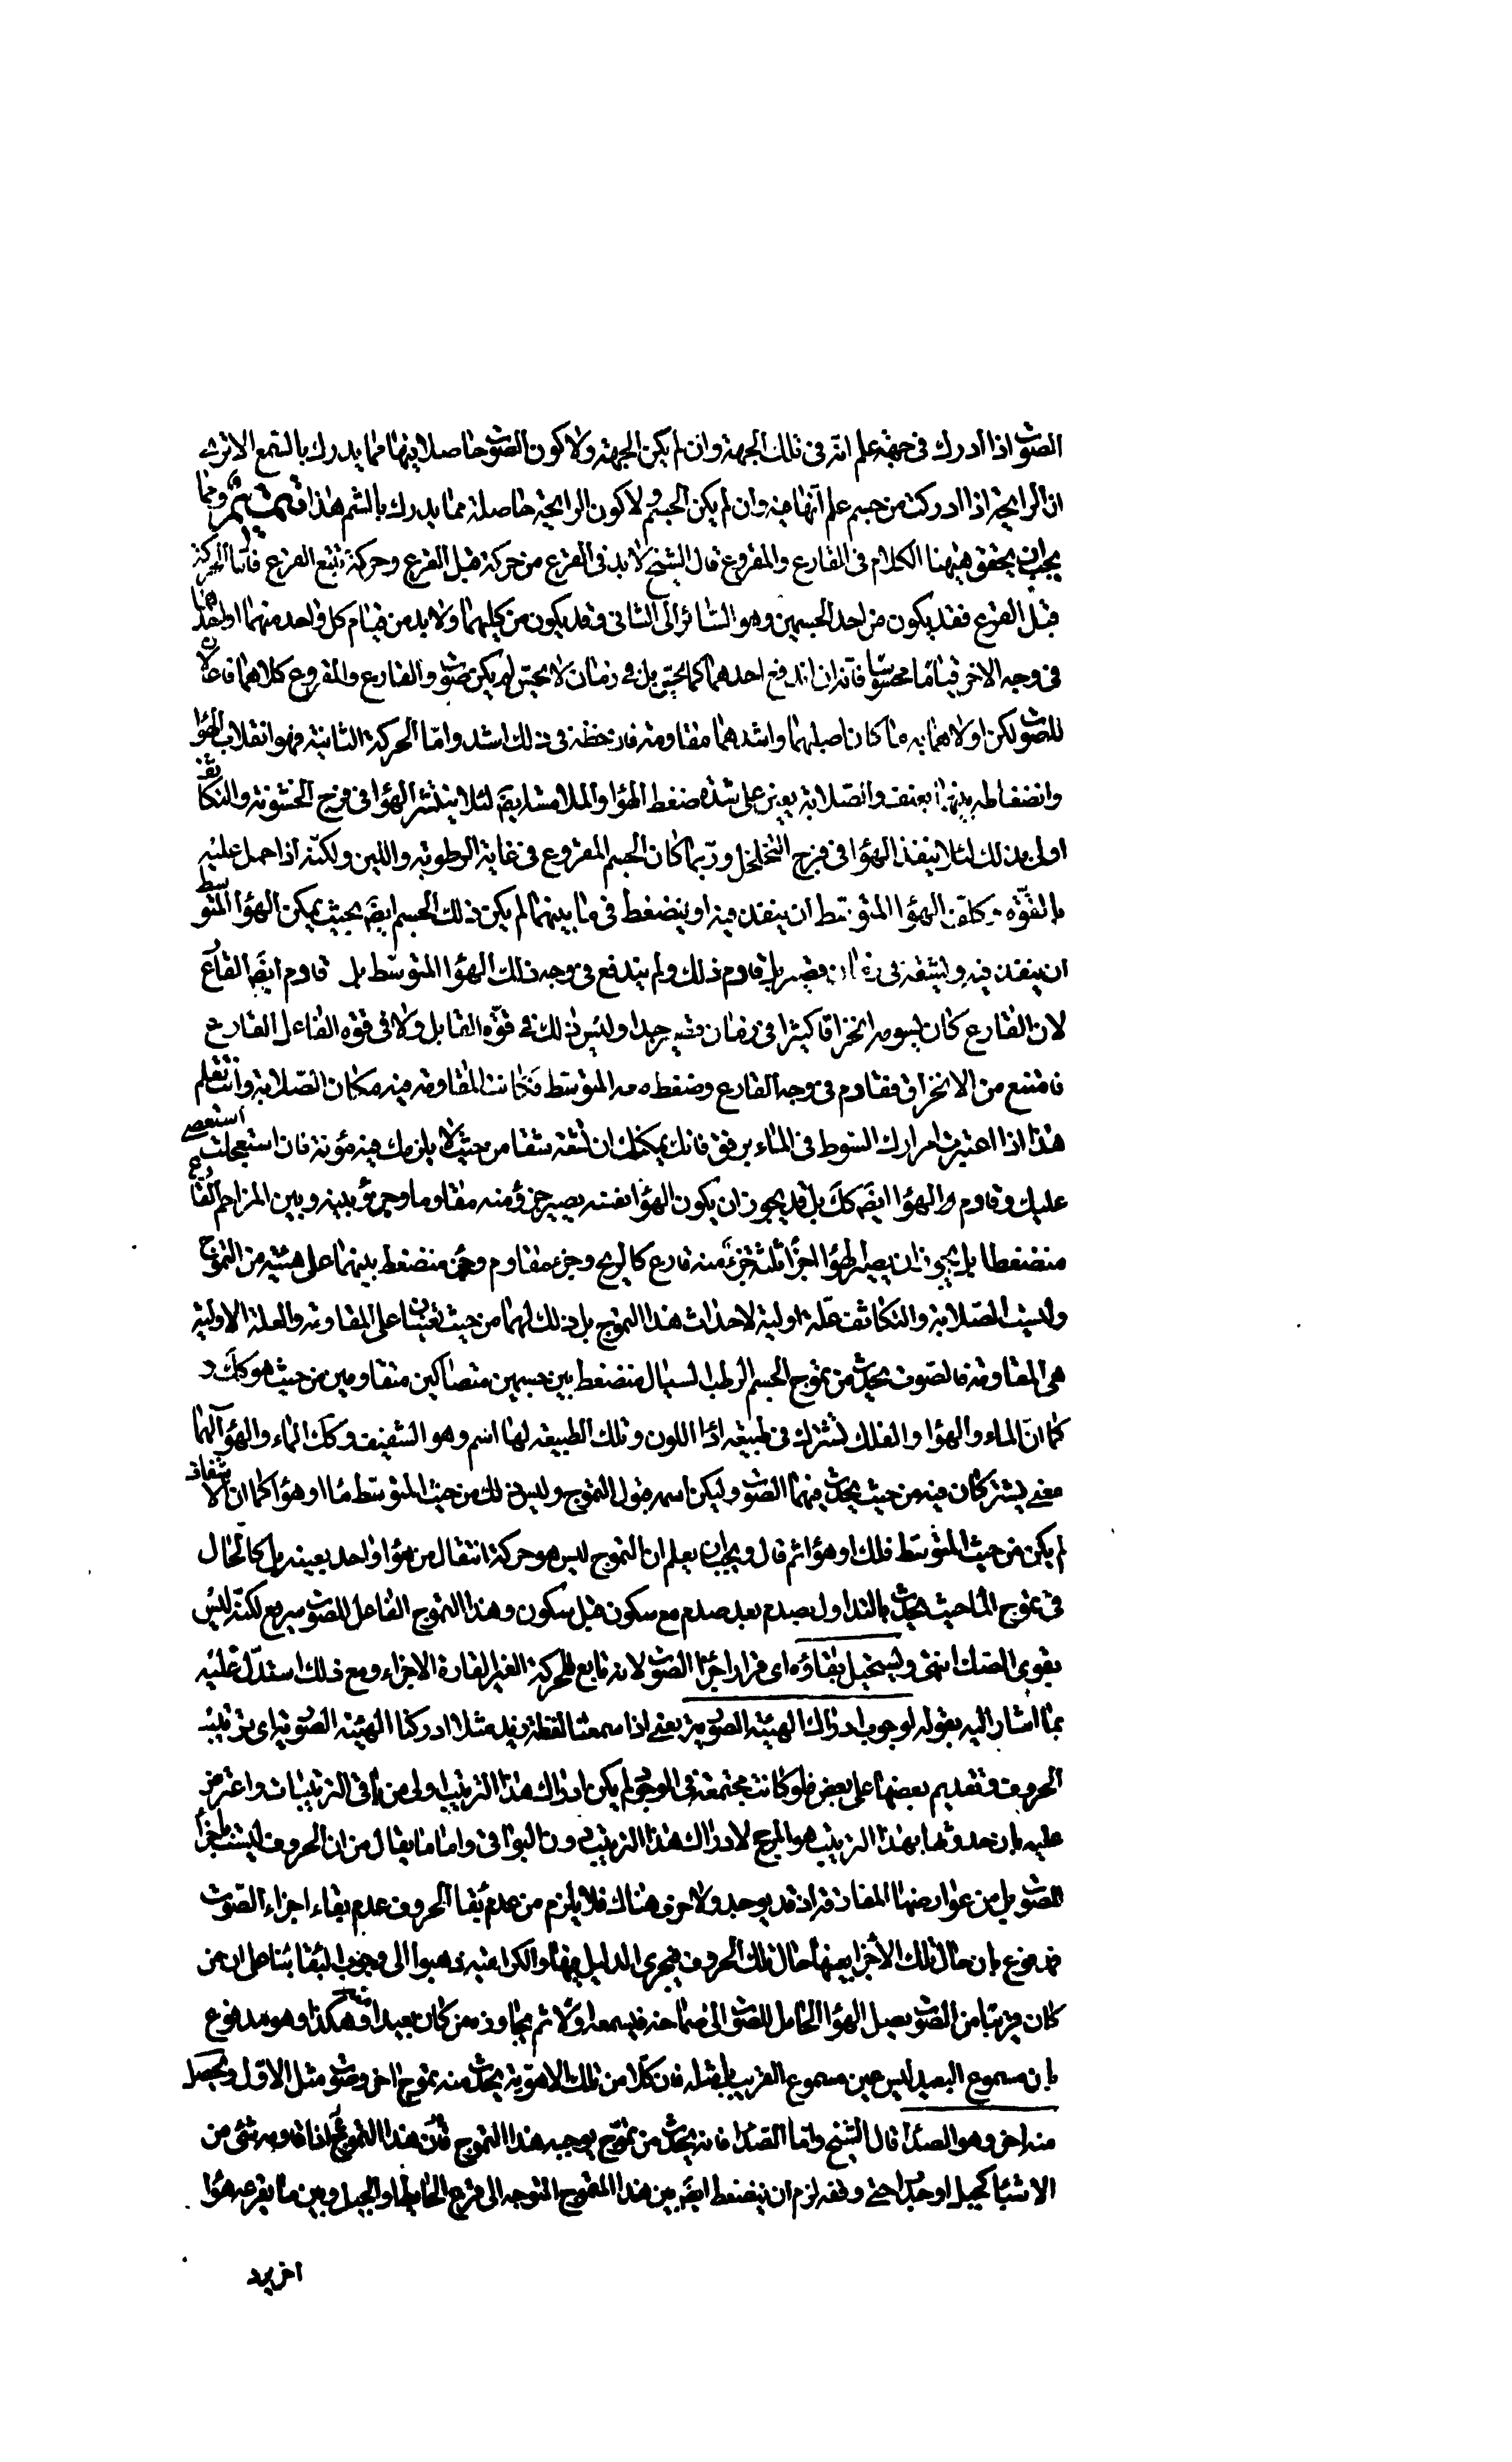 الصوت اذا ادرك فى جهة علم انه فى تلك الجهة وان لم يكن الجهة ولا كون الصوت حاصلا فيها مما يدرك بالسمع الا ترى
ان الرايحة اذا ادركت من جسم علم انها منه وان لم يكن الجسم ولا كون الرايحة حاصلة مما يدرك بالشم هذا ومما
يجب ان يحقق ههنا الكلام فى القارع والمقروع قال الشيخ لا بد فى القرع من حركة قبل القرع وحركة تتبع القرع فاما الحركة
قبل القرع فقد يكون من احد الجسمين وهو السائر الى الثانى وقد يكون من كليهما ولا بد من قيام كل واحد منهما او احدهما
فى وجه الاخر قياما محسوسا فانه ان اندفع احدهما كما يحس بل فى زمان لا يحس لم يكن صوت والقارع والمقروع كلاهما فاعلان
للصوت لكن اولاهما به ما كان اصلبهما واشدهما مقاومة فان حظه فى ذلك اشد واما الحركة الثانية فهو انقلاب الهوا
وانضغاطه بينهما بعنف والصلابة يعين على شدة ضغط الهوا والملاسة ايضَ لئلا ينتشر الهوا فى فرج الخشونة والتكاثف
اولى بذلك لئلا ينفذ الهوا فى فرج التخلخل وربما كان الجسم المقروع فى غاية الرطوبة واللين ولكنه اذا حمل عليه
بالقوة وكلف الهوا المتوسط ان ينفذ فيه او ينضغط فى ما بينهما لم يكن ذلك الجسم ايضَ بحيث يمكن الهوا المتوسط
ان ينفذ فيه ويشقه فى زمان قصير بل قاوم ذلك ولم يندفع فى وجه ذلك الهوا المتوسط بل قاوم ايضَ القارع
لان القارع كان يسومه انخراقا كثيرا فى زمان قصير جدا وليس ذلك فى قوة القابل ولا فى قوة الفاعل القارع
فامتنع من الانخراق فقاوم فى وجه القارع وضغطه معه المتوسط فكانت المقاومة فيه مكان الصلابة وانت تعلم
هذا اذا اعتبرت امرارك السوط فى الماء برفق فانك يمكنك ان تشقه شقا من حيث لا يلزمك فيه مؤنة فان استعجلت استعصى
عليك وقاوم والهوا ايضَ كك بل قد يجوز ان يكون الهوا نفسه يصير جزؤ منه مقاوما وجزؤ بينه وبين المزاحم القارع
منضغطا بل يجوز ان يصير الهوا اجزا ثلثة جزء منه قارع كالريح وجزء مقاوم وجزء منضغط بينهما على هيئة من التموج
وليست الصلابة والتكاثف علة اولية لاحداث هذا التموج بل ذلك لهما من حيث تعينان على المقاومة والعلة الاولية
هى المقاومة فالصوت يحدث من تموج الجسم الرطب السيال منضغط بين جسمين متصاكين متقاومين من حيث هو كك و
كما ان الماء والهوا والفلك تشترك فى طبيعة اداء اللون وتلك الطبيعة لها اسم وهو الشفيف وكك الماء والهوا لهما
معنى يشتركان فيه من حيث يحدث فيهما الصوت وليكن اسمه قبول التموج وليس ذلك من حيث المتوسط ماء او هوا كما ان الاشفاف
لم يكن من حيث المتوسط فلك او هوا ثم قال ويجب ان يعلم ان التموج ليس هو حركة انتقال من هوا واحد بعينه بل كالحال
فى تموج الماء حيث يحدث بالتداول بصدم بعد صدم مع سكون قبل سكون وهذا التموج الفاعل للصوت سريع لكنه ليس
بقوى الصك انتهى ويستحيل بقاؤه اى قرار اجزا الصوت لانه تابع للحركة الغير القارة الاجزاء ومع ذلك استدل عليه
بما اشار اليه بقوله لوجوب ادراك الهيئة الصوتية يعنى اذا سمعنا لفظة زيد مثلا ادركنا الهيئة الصوتية اى ترتيب
الحروف وتقديم بعضها على بعض فلو كانت مجتمعة فى الوجود لم يكن ادراك هذا الترتيب اولى من باقى الترتيبات واعترض
عليه بان حدوثها بهذا الترتيب هو المرجح لادراك هذا الترتيب دون البواقى واما ما يقال من ان الحروف ليست اجزا
للصوت بل من عوارضها المفارقة اذ قد يوجد ولا حرف هناك فلا يلزم من عدم بقا الحروف عدم بقاء اجزاء الصوت
فمدفوع بان حال تلك الاجزا بعينها حال تلك الحروف فيجرى الدليل فيها والكرامية ذهبوا الى وجوب البقا بناء على ان من
كان قريبا من الصوت يصل الهوا الحامل للصوت الى صماخه فيسمعه اولا ثم يجاوزه من كان بعيدا وهكذا وهو مدفوع
بان مسموع البعيد ليس عين مسموع القريب بل مثله فان كلا من تلك الاهوية يحدث منه تموج اخر وصوت مثل الاول ويحصل
منه اخر وهو الصدا قال الشيخ واما الصدا فانه يحدث من تموج يوجبه هذا التموج فان هذا التموج اذا قاومه شئ من
الاشيا كجبل او جدار حتى وقفه لزم ان ينضغط ايضَ بين هذا المتموج المتوجه الى قرع الحايط او الجبل وبين ما يقرعه هوا
اخر يرد